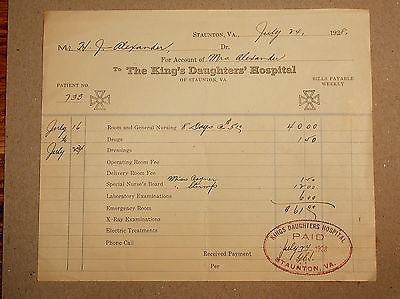 STAUNTON, VA., July 24, 1928.
Mr. H J Alexander Dr.
For Account of Mrs Alexander
To The King's Daughters' Hospital
OF STAUNTON, VA.
PATIENT NO.
733
BILLS PAYABLE
WEEKLY
July 16 Room and General Nursing 8 Days @ 5.00 40 00
to Drugs 1 50
July 24 Dressings
Operating Room Fee
Delivery Room Fee
Special Nurse's Board Miss 1 50
12 00
Laboratory Examinations 6 00
Emergency Room $ 61.00
X-Ray Examinations
Electric Treatments
Phone Call
Received Payment
Per
KINGS DAUGHTERS HOSPITAL
PAID
July 24 1928
STAUNTON, VA.